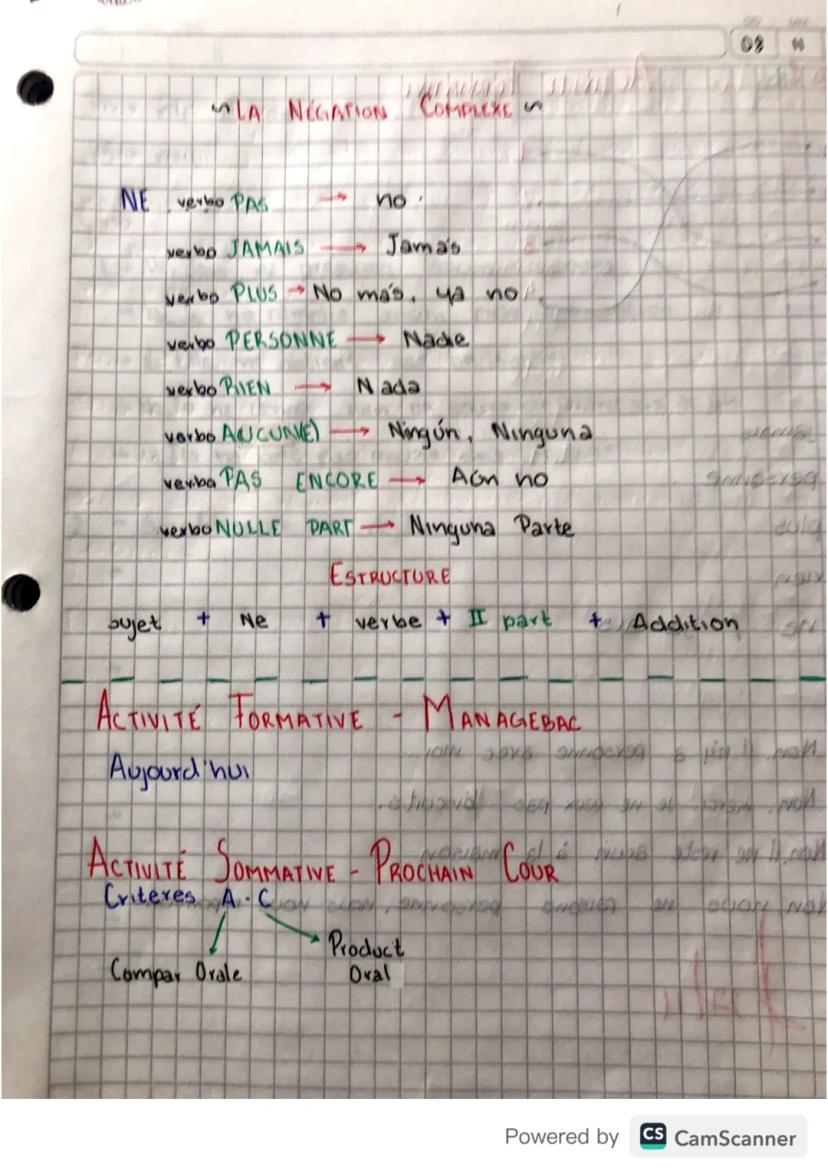 08 11
~ LA NÉGATION COMPLEXE ~
NE verbo PAS → no
verbo JAMAIS → Jamás
verbo PLUS → No más, ya no
verbo PERSONNE → Nadie
verbo RIEN → Nada
verbo AUCUN(E) → Ningún, Ninguna
verbo PAS ENCORE → Aún no
verbo NULLE PART → Ninguna Parte
ESTRUCTURE
sujet + Ne + verbe + II part + Addition
ACTIVITÉ FORMATIVE - MANAGEBAC
Aujourd'hui
ACTIVITÉ SOMMATIVE - PROCHAIN COUR
Criteres A - C
Compar Orale
Product
Oral
Powered by CS CamScanner